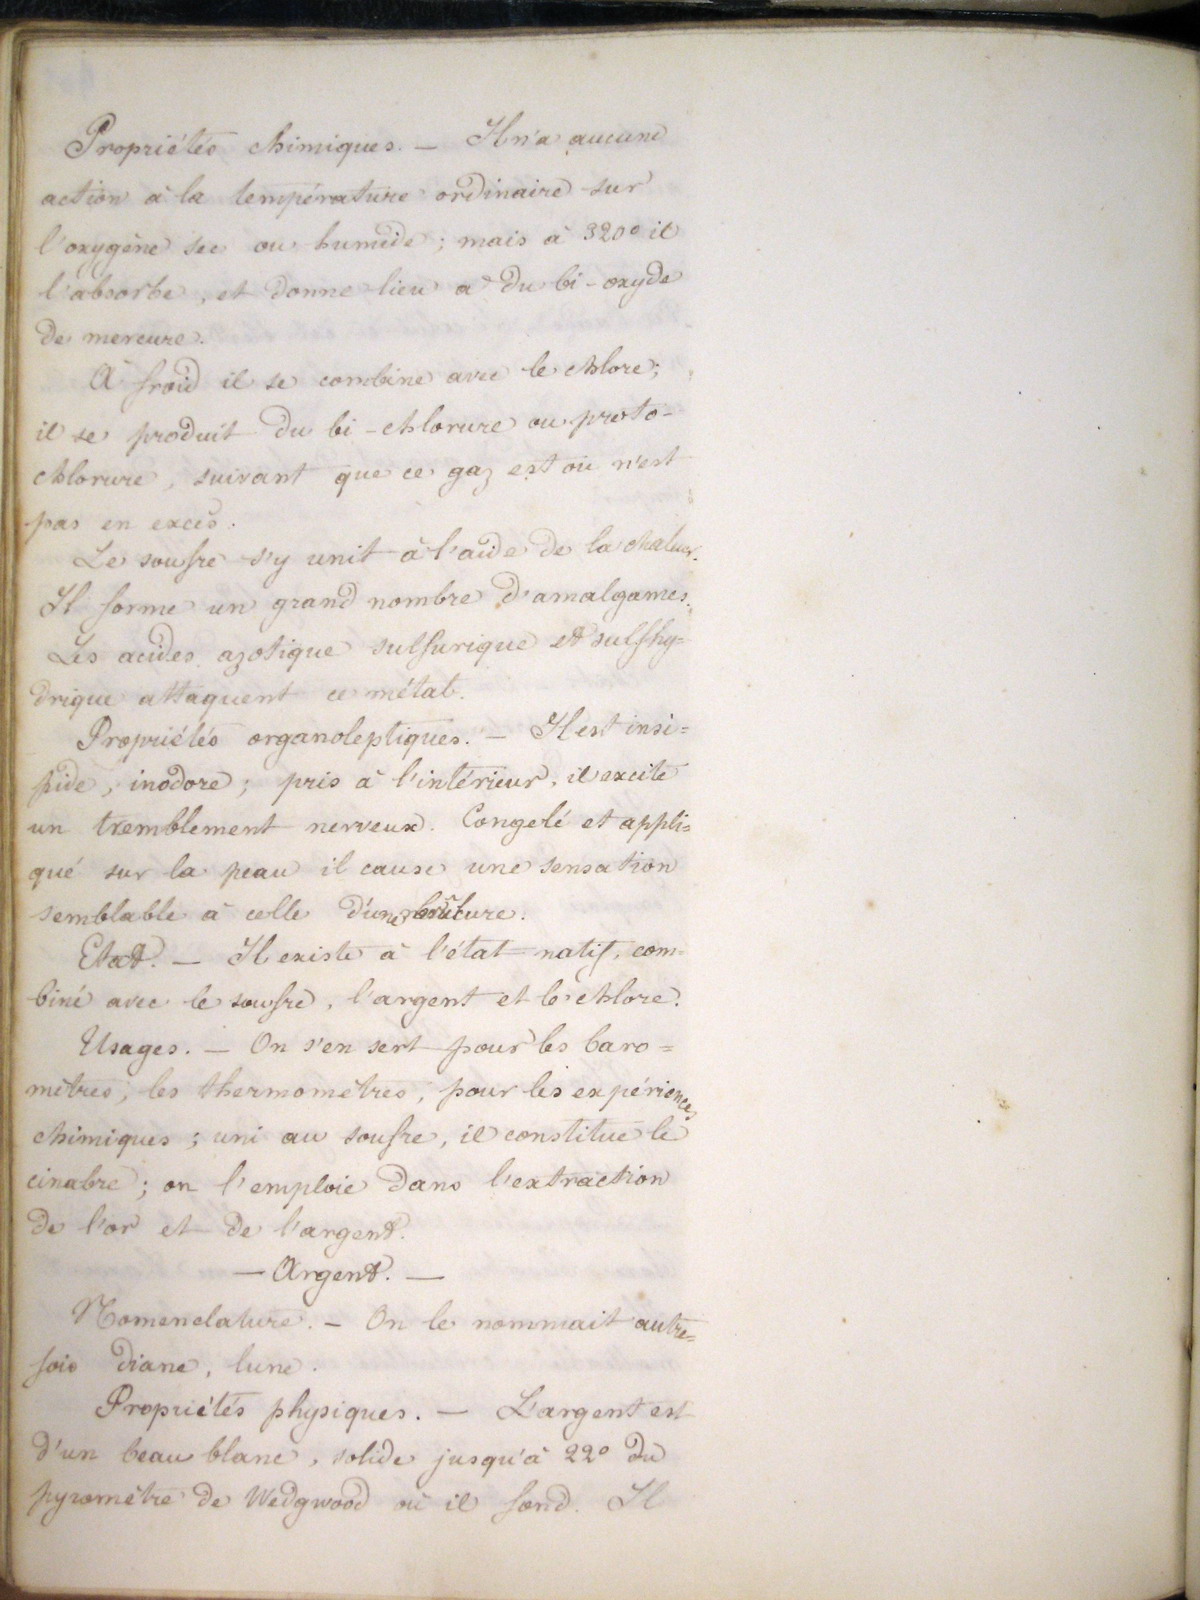 Propriétés chimiques. — Il n'a aucune
action à la température ordinaire sur
l'oxygène sec ou humide ; mais à 320° il
l'absorbe, et donne lieu à du bi-oxyde
de mercure.
À froid il se combine avec le chlore ;
il se produit du bi-chlorure ou proto-
chlorure, suivant que ce gaz est ou n'est
pas en excès.
Le soufre s'y unit à l'aide de la chaleur.
Il forme un grand nombre d'amalgames.
Les acides azotique sulfurique et sulfhy=
drique attaquent ce métal.
Propriétés organoleptiques. — Il est insi=
pide, inodore ; pris à l'intérieur, il excite
un tremblement nerveux. Congelé et appli=
qué sur la peau il cause une sensation
semblable à celle d'une brûlure.
Etat. — Il existe à l'état natif, com=
biné avec le soufre, l'argent et le chlore.
Usages. — On s'en sert pour les baro=
mètres, les thermomètres, pour les expériences
chimiques ; uni au soufre, il constitue le
cinabre ; on l'emploie dans l'extraction
de l'or et de l'argent.
— Argent. —
Nomenclature. — On le nommait autre=
fois diane, lune.
Propriétés physiques. — L'argent est
d'un beau blanc, solide jusqu'à 22° du
pyromètre de Wedgwood où il fond. Il